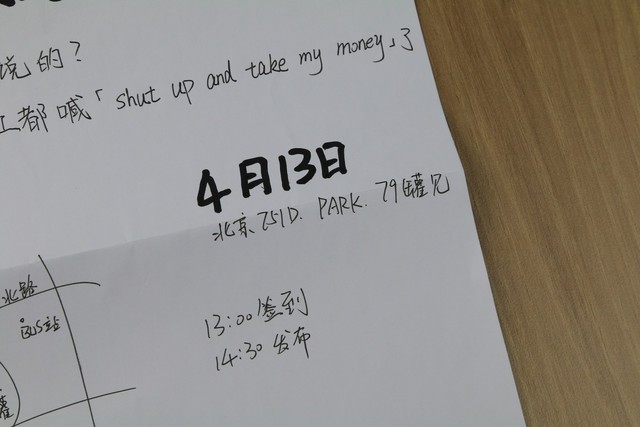 说的？
都喊「shut up and take my money」了
4月13日
北京751D.PARK.79罐
北路
BUS站
13:00签到
14:30发布
罐